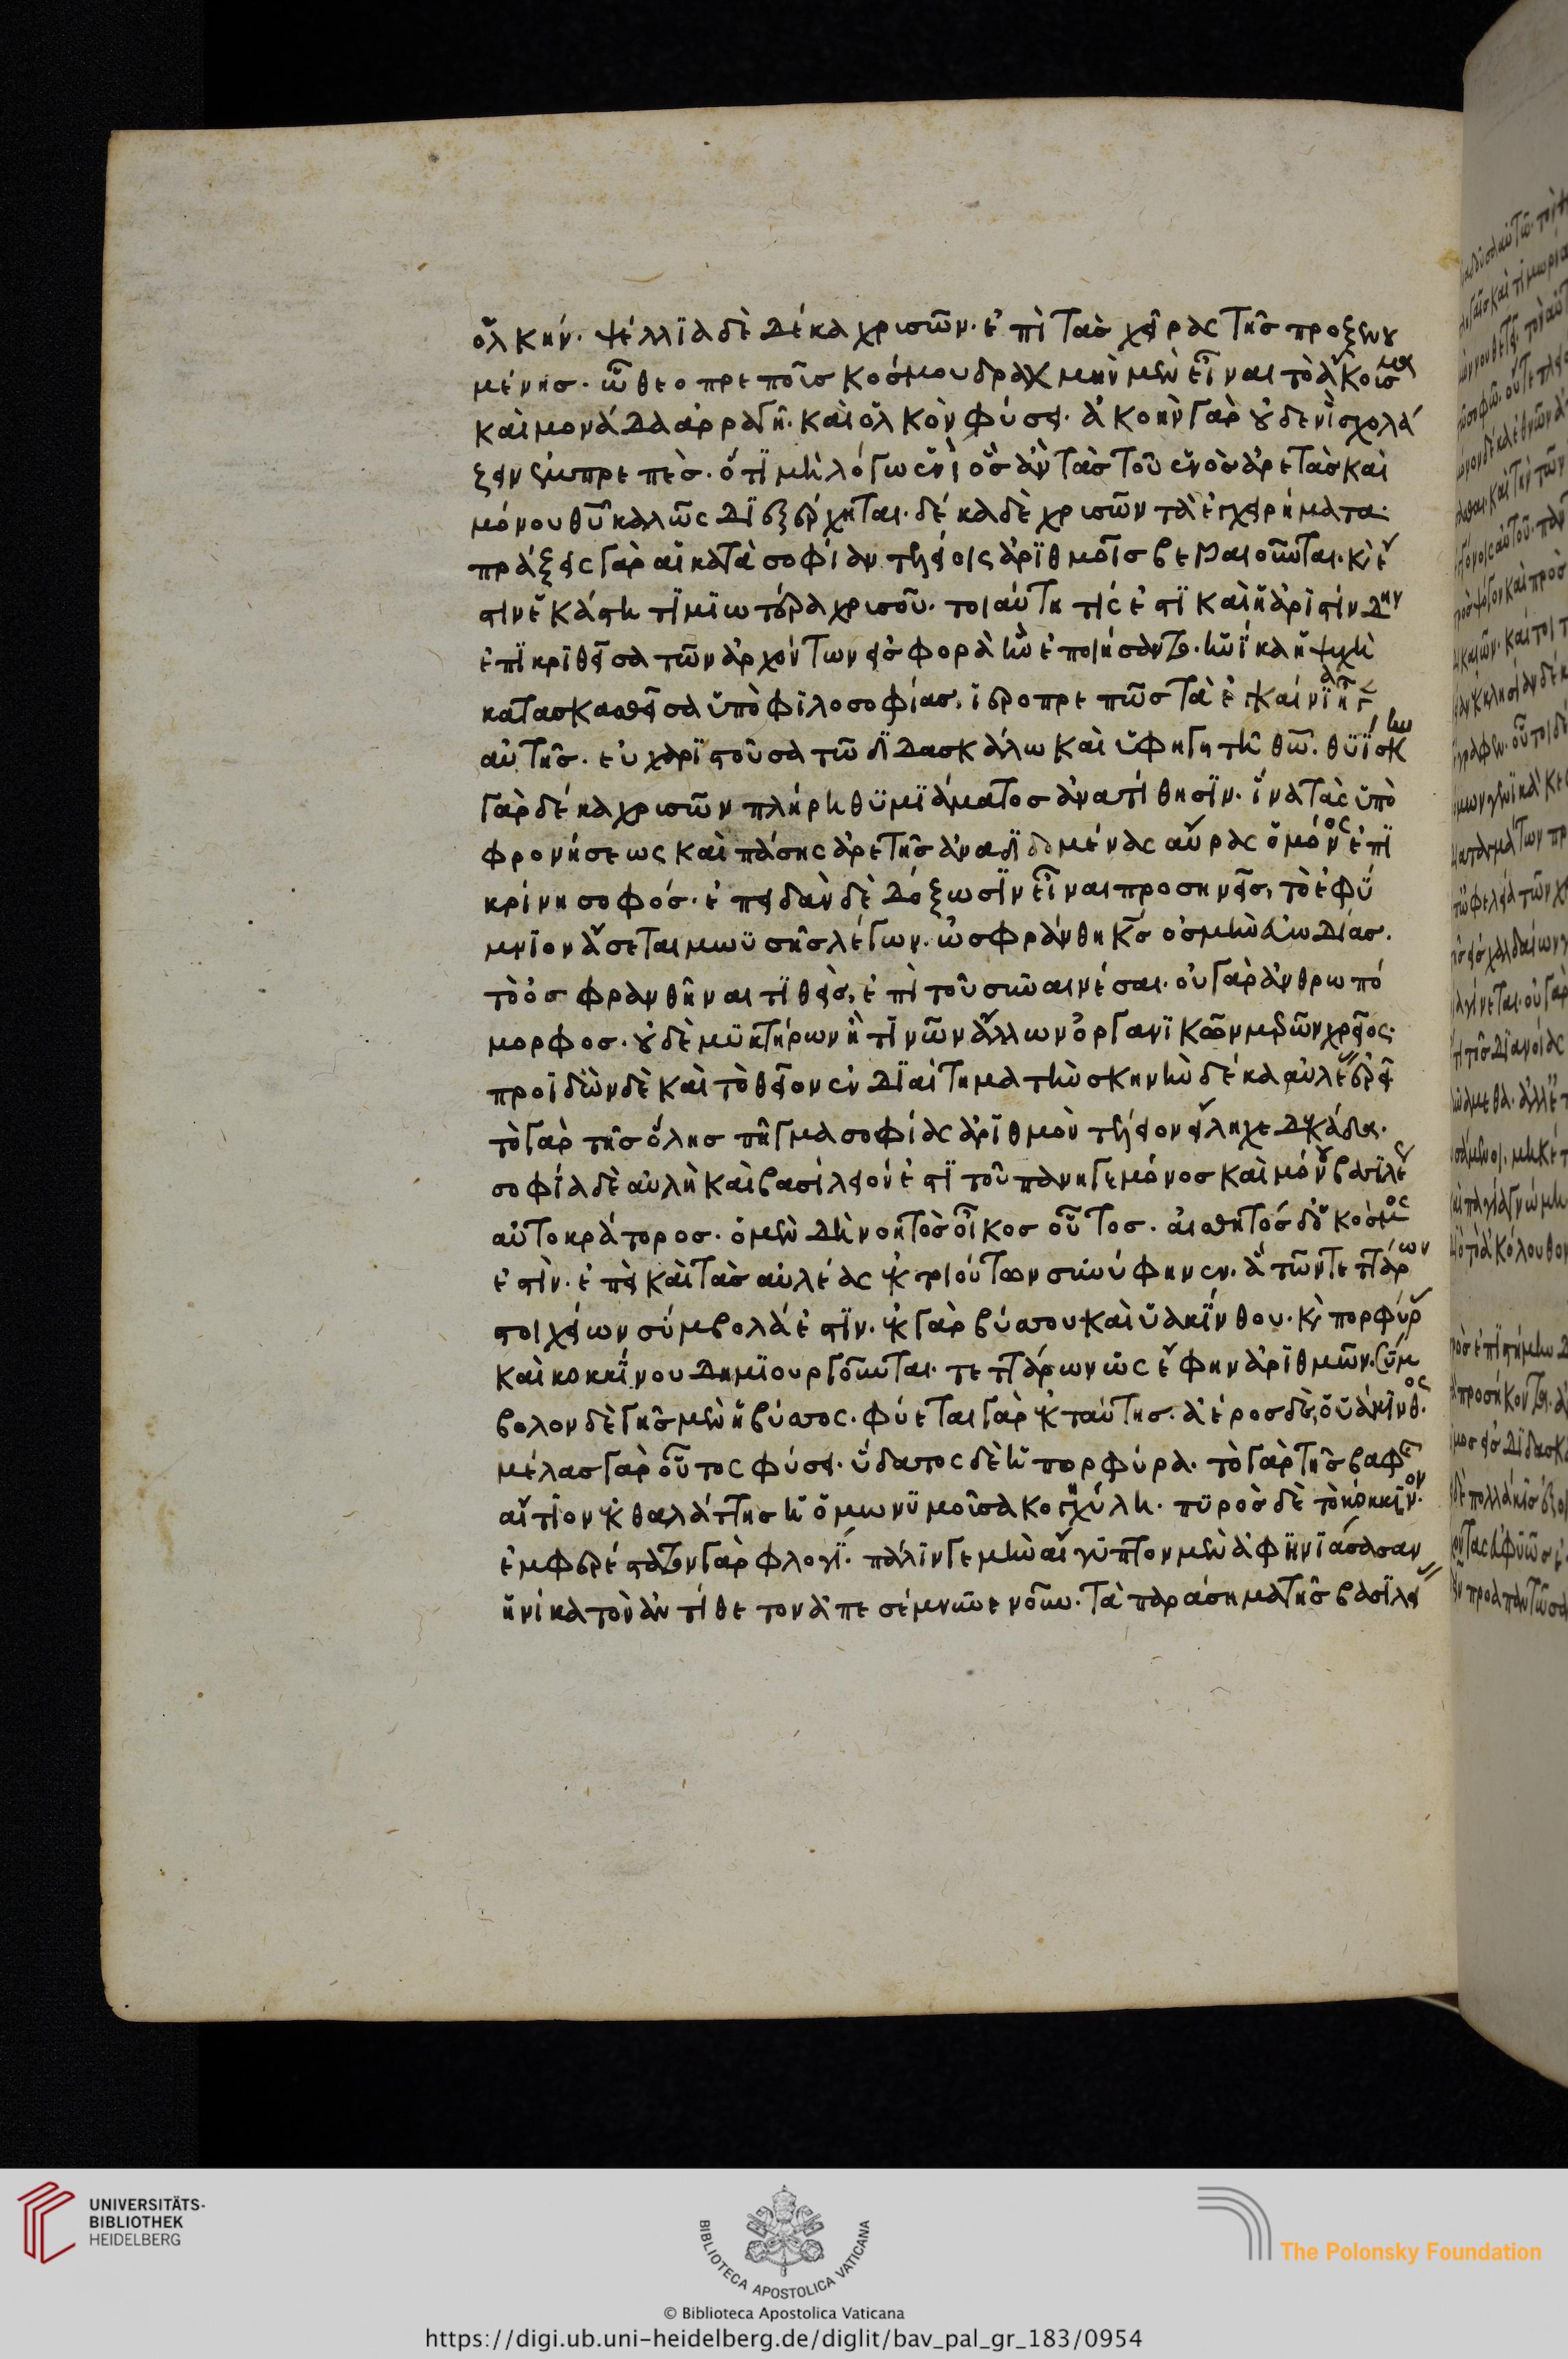 ὁλκήν. ψέλλια δὲ δέκα χρυσῶν. ἐπὶ τὰς χεῖρας τῆς προξενου
μένης. ὦ θεοπρεποῦς κόσμου δραχμὴν μὲν εἶναι τὸ ἄκουσμα
καὶ μονάδα ἀρραγῆ. καὶ ὁλκὸν φύσει. ἀκοὴν γὰρ οὐδενὶ σχολά
ζειν ἐμπρεπὲς. ὅτι μὴ λόγω ἑνὶ ὃς ἂν τὰς τοῦ ἑνὸς ἀρετὰς καὶ
μόνου θυ καλῶς διεξέρχηται. δέκα δὲ χρυσῶν τὰ ἐγχειρήματα.
πράξεις γὰρ αἱ κατὰ σοφίαν τελείοις ἀριθμοῖς βεβαιοῦνται. κὶ ἔ
στιν ἑκάστη τιμιωτέρα χρυσοῦ. τοιαύτη τίς ἐστι καὶ ἡ ἀριστίνδην
ἐπικριθεῖσα τῶν ἀρχόντων εἰσφορὰ ἣν ἐποιήσαντο. ἡνίκα ἡ ψυχὴ
κατασκευασθεῖσα ὑπὸ φιλοσοφίας, ἱεροπρεπῶς τὰ ἐγκαίνια ἦγεν
αὐτῆς. εὐχαριστοῦσα τῶ διδασκάλω καὶ ὑφηγητῆ θω. θυΐσκην
γὰρ δέκα χρυσῶν πλήρη θυμιάματος ἀνατίθησιν. ἵνα τὰς ὑπὸ
φρονήσεως καὶ πάσης ἀρετῆς ἀναδιδομένας αὔρας ὁ μόνος ἐπι
κρίνη σοφός. ἐπειδὰν δὲ δόξωσιν εἶναι προσηνεῖς, τὸ ἐφύ
μνιον ἄσεται μωυσῆς λέγων. ὠσφράνθη κς ὀσμὴν εὐωδίας.
τὸ ὀσφρανθῆναι τιθεὶς, ἐπὶ τοῦ συναινέσαι. οὐ γὰρ ἀνθρωπό
μορφος. οὐδὲ μυκτήρων ἢ τινῶν ἄλλων ὀργανικῶν μερῶν χρεῖος.
προϊδὼν δὲ καὶ τὸ θεῖον ἐνδιαίτημα τὴν σκηνὴν δέκα αὐλαίας ἐρεῖ
τὸ γὰρ τῆς ὅλης πῆγμα σοφίας ἀριθμὸν τέλειον εἴληχε δεκάδα.
σοφία δὲ αὐλὴ καὶ βασίλειόν ἐστι τοῦ πανηγεμόνος καὶ μόνου βασιλέως
αὐτοκράτορος. ὁ μὲν δὴ νοητὸς οἶκος οὗτος. αἰσθητὸς δὲ ὁ κόσμος
ἐστὶν. ἐπεὶ καὶ τὰς αὐλέας ἐκ τοιούτων συνύφηνεν. ἃ τῶν τεττάρων
στοιχείων σύμβολά ἐστιν. ἐκ γὰρ βύσσου καὶ ὑακίνθου. κὶ πορφύρας
καὶ κοκκίνου δημιουργοῦνται. τεττάρων ὡς ἔφην ἀριθμῶν. σύμ
βολον δὲ γῆς μὲν ἡ βύσσος. φύεται γὰρ ἐκ ταύτης. ἀέρος δὲ, ὁ ὑάκινθος.
μέλας γὰρ οὗτος φύσει. ὕδατος δὲ ἡ πορφύρα. τὸ γὰρ τῆς βαφῆς
αἴτιον ἐκ θαλάττης ἡ ὁμωνυμοῦσα κογχύλη. πυρὸς δὲ τὸ κόκκινον.
ἐμφερέστατον γὰρ φλογί. πάλιν γε μὴν αἴγυπτον μὲν ἀφηνιάσασαν
ἡνίκα τὸν ἀντίθεον ἀπεσέμνυνε νοῦν. τὰ παράσημα τῆς βασιλεί
UNIVERSITÄTS-
BIBLIOTHEK
HEIDELBERG
BIBLIOTECA APOSTOLICA VATICANA
The Polonsky Foundation
© Biblioteca Apostolica Vaticana
https://digi.ub.uni-heidelberg.de/diglit/bav_pal_gr_183/0954